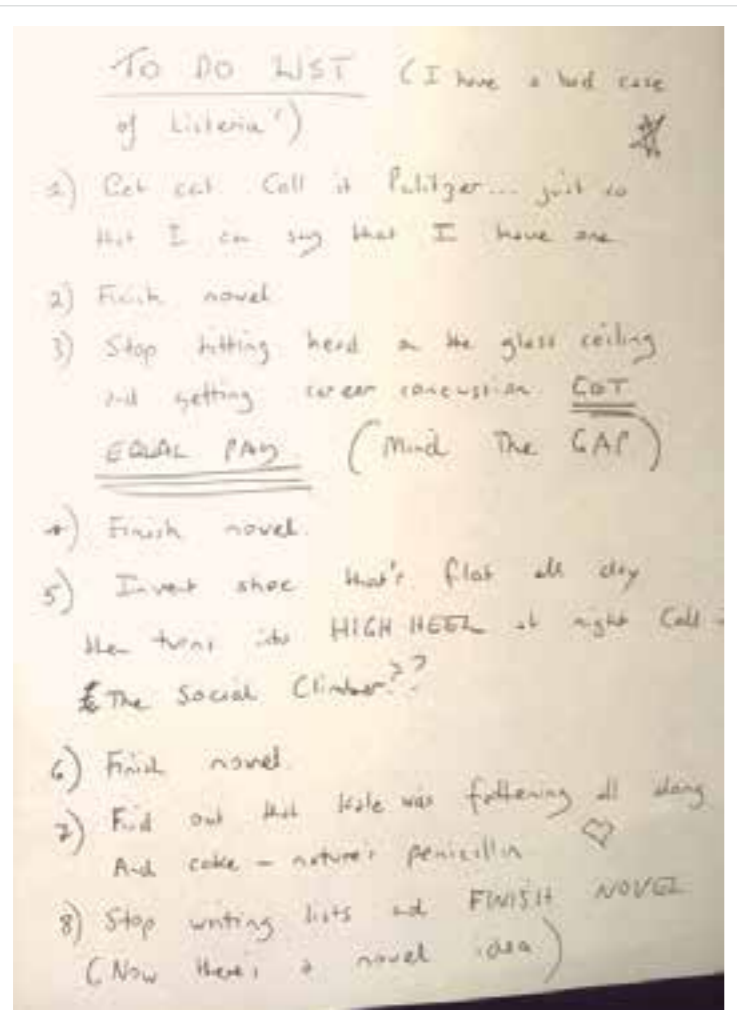 TO DO LIST (I have a bad case
of Listeria')
1) Get cat. Call it Pulitzer... just so
that I can say that I have one
2) Finish novel
3) Stop hitting head on the glass ceiling
and getting career concussion. GET
EQUAL PAY (Mind The GAP)
4) Finish novel.
5) Invent shoe that's flat all day
then turns into HIGH HEEL at night Call
The Social Climber??
6) Finish novel.
7) Find out that kale was fattening all along
And cake - nature's penicillin
8) Stop writing lists and FINISH NOVEL
(Now there's a novel idea)